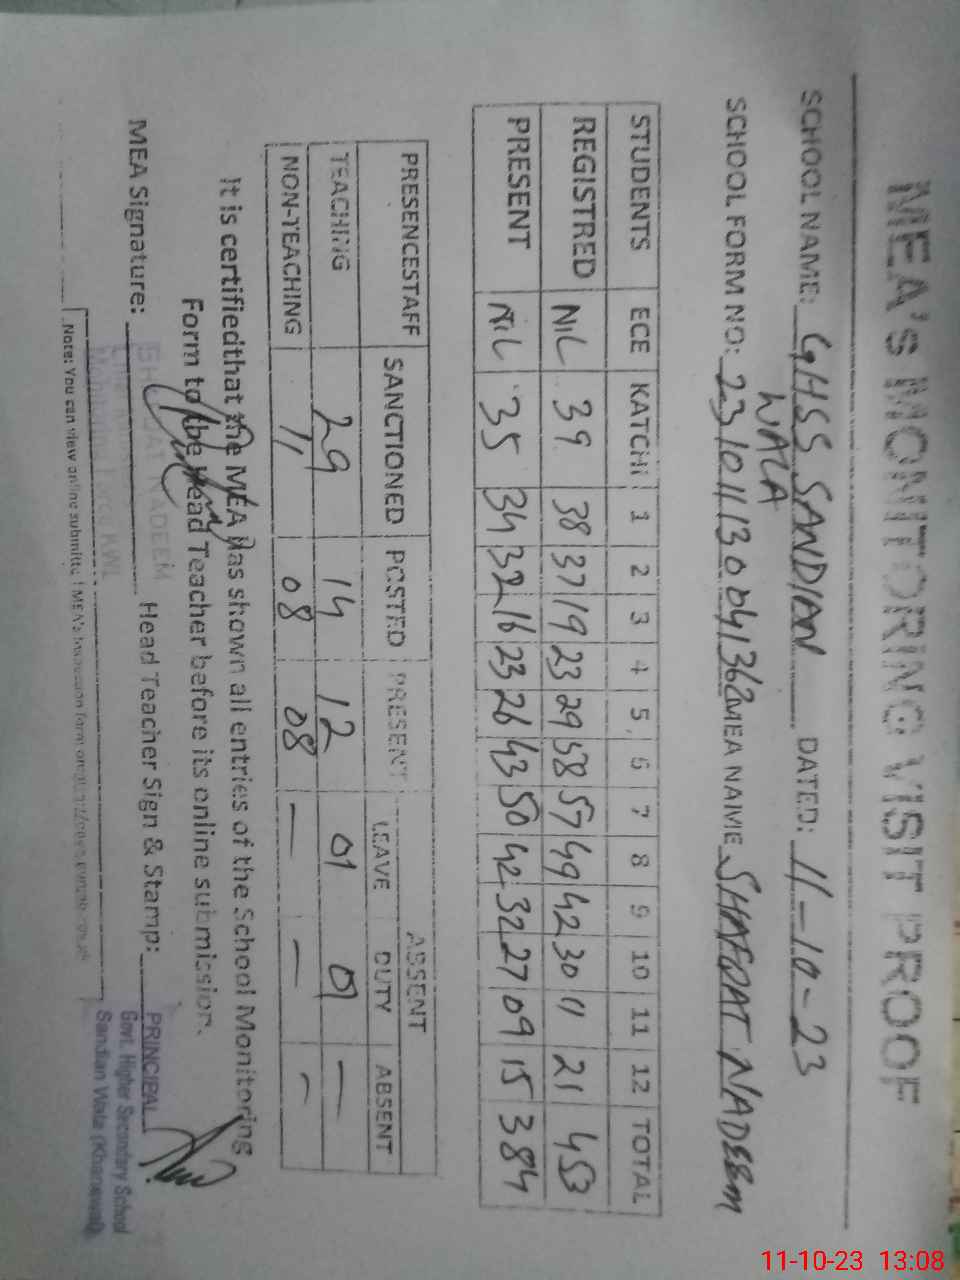 MEA's MONITORING VISIT PROOF
SCHOOL NAME: GHSS SANDIAN WALA DATED: 11-10-23
SCHOOL FORM NO: 23/011130041362 MEA NAME SHAFQAT NADEEM
STUDENTS ECE KATCHI 1 2 3 4 5 6 7 8 9 10 11 12 TOTAL
REGISTRED NIL 39 38 37 19 23 29 58 57 49 42 30 11 21 453
PRESENT NIL 35 34 32 16 23 26 43 50 42 32 27 09 15 384
PRESENCESTAFF SANCTIONED POSTED PRESENT ABSENT
LEAVE DUTY ABSENT
TEACHING 29 14 12 01 01 —
NON-TEACHING 11 08 08 — — —
It is certifiedthat the MEA has shown all entries of the School Monitoring
Form to the Head Teacher before its online submission.
MEA Signature: Head Teacher Sign & Stamp:
SHAFQAT NADEEM
PRINCIPAL
Govt. Higher Secondary School
Sandian Wala (Khanewal)
Note: You can view online submitted MEA's
11-10-23 13:08